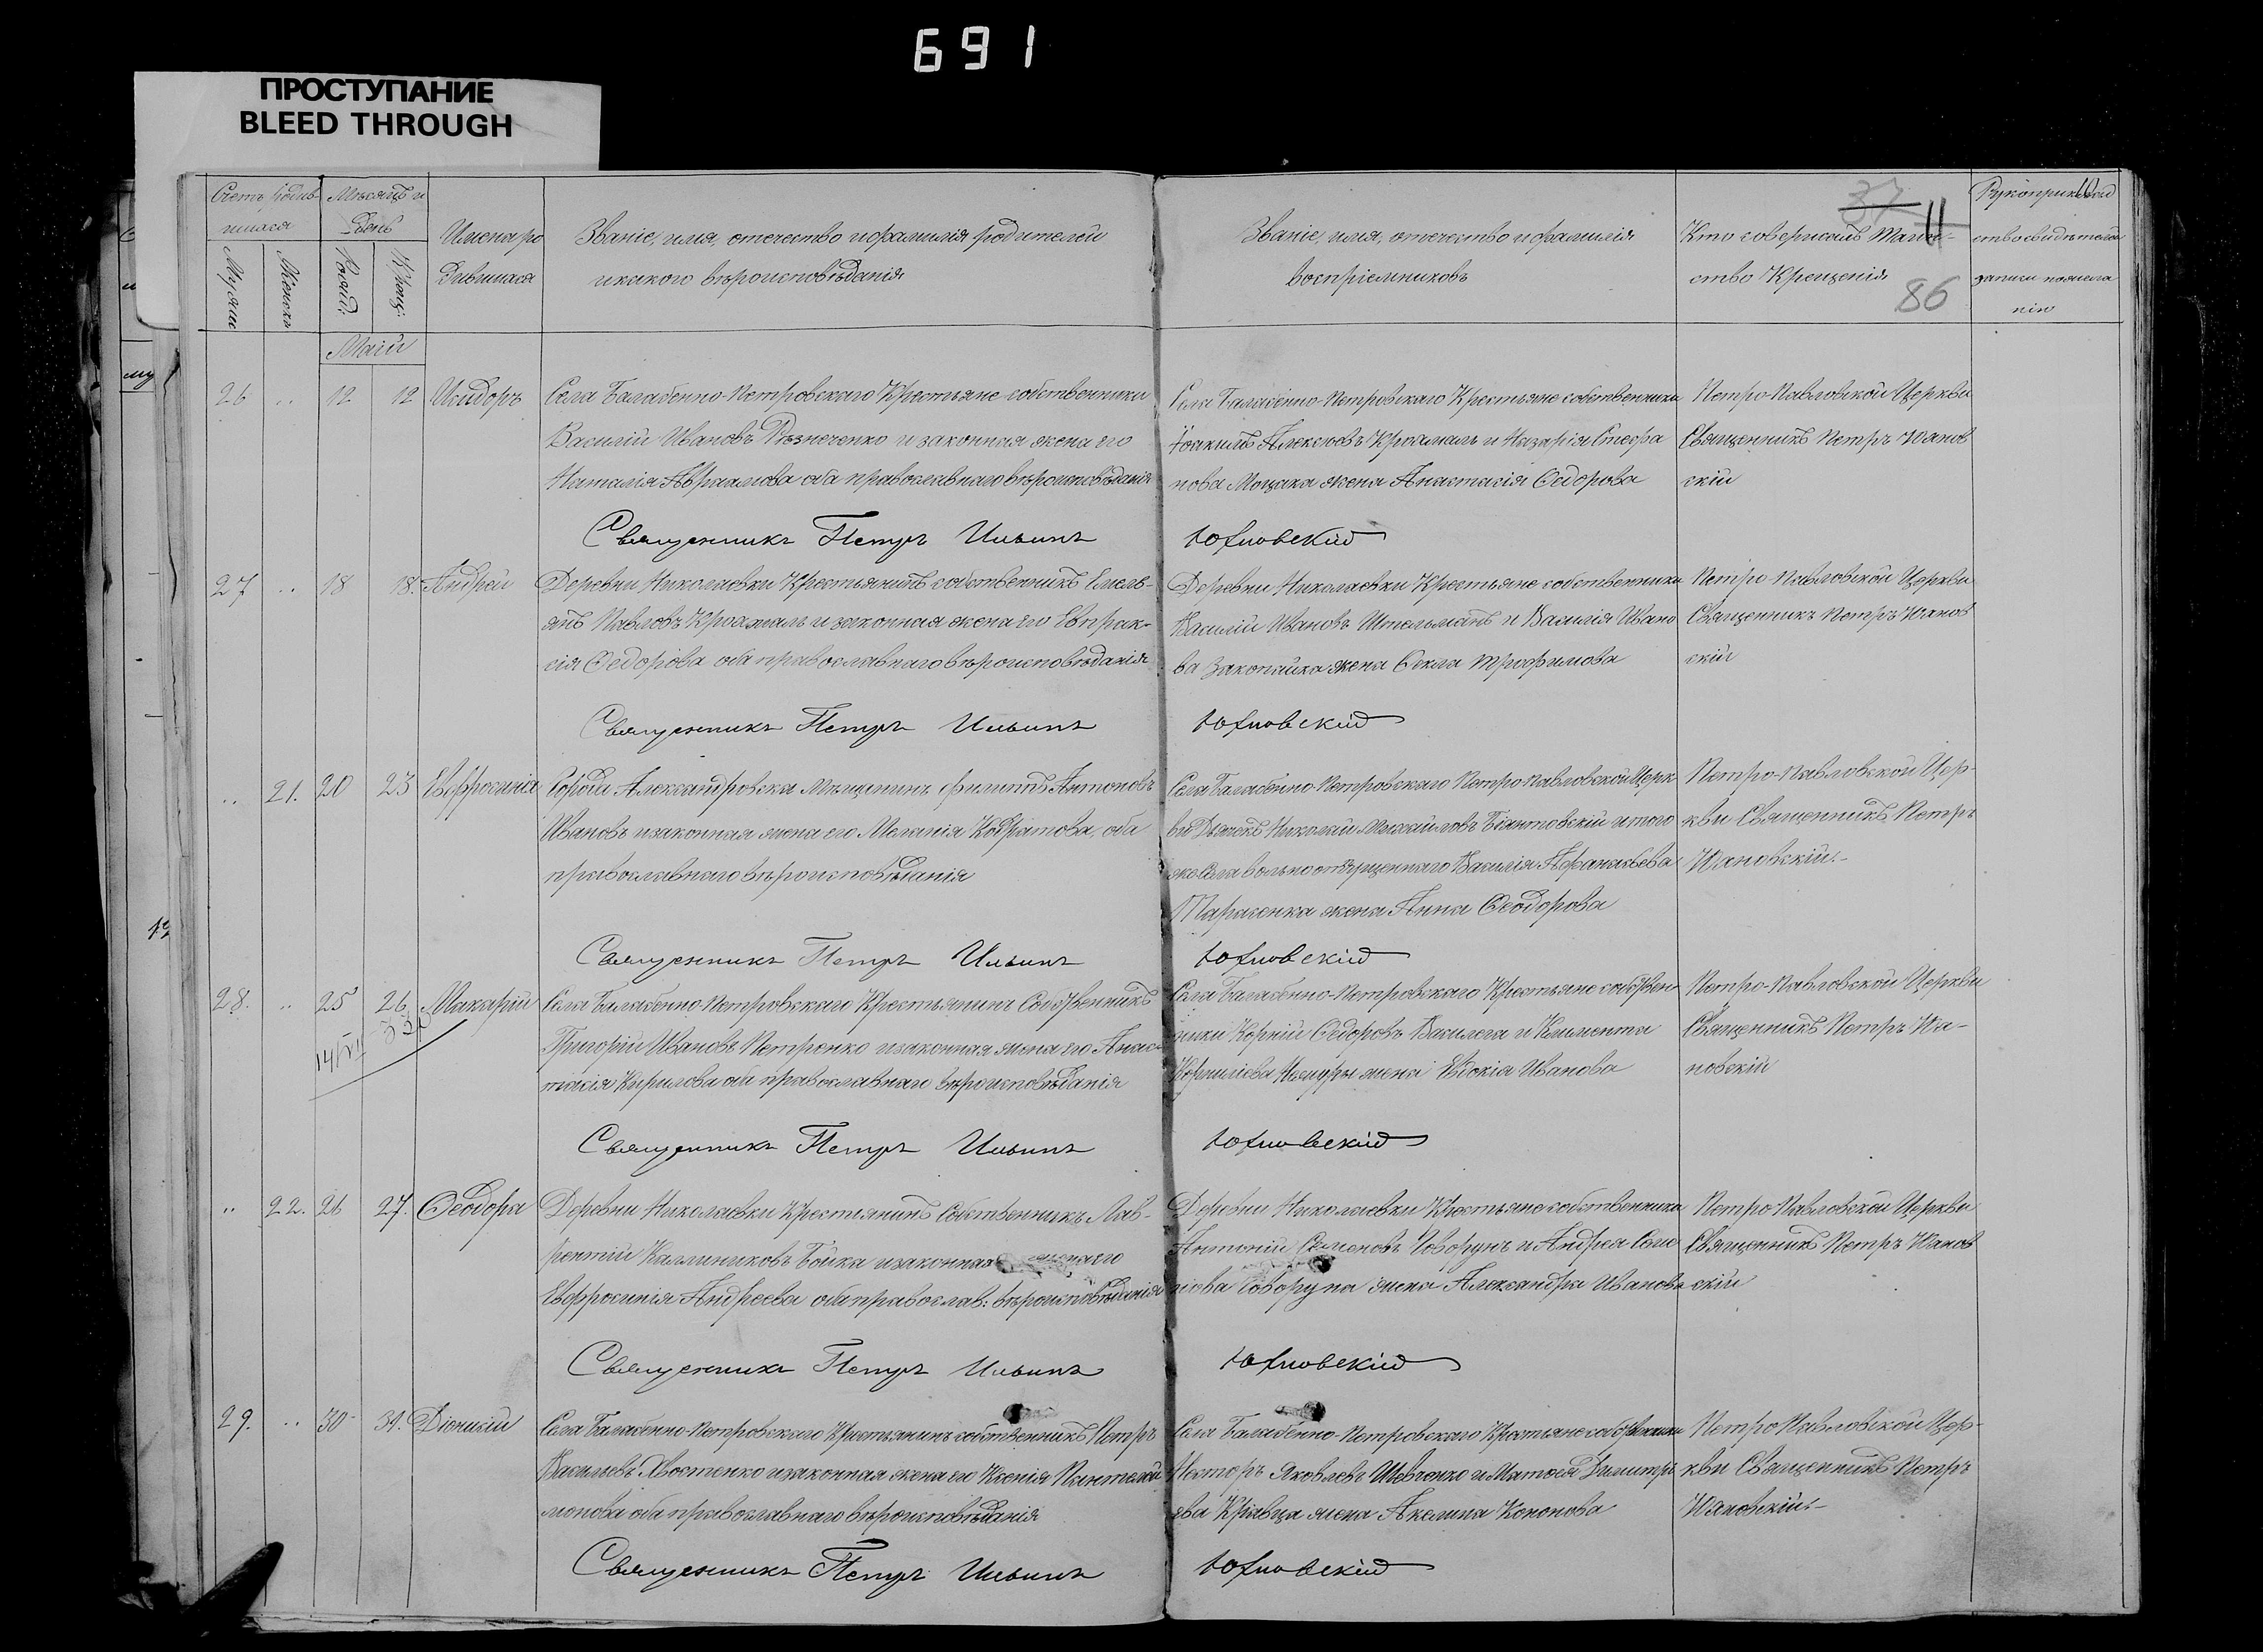 691
ПРОСТУПАНИЕ
BLEED THROUGH
Счетъ родив- Мѣсяцъ и
шихся день
Имена ро Званіе, имя, отечество и фамилія родителей
Званіе, имя, отечество и фамилія
Кто совершалъ Таин-
37 11
дившихся и какого вѣроисповѣданія
воспріемниковъ
ство Крещенія
86
записи по
нію
Мужс. Женск. Рожд: Крещ:
Май
26 .. 12 12 Исидоръ Села Балабенно-Петровскаго Крестьяне собственники
Василій Ивановъ Рѣзнеченко и законная жена его
Наталія Авраамова оба православнаго вѣроисповѣданія
Села Балабенно-Петровскаго Крестьяне собственники
Іоакимъ Алексѣевъ Крохмаль и Назарія Стефа
нова Моцака жена Анастасія Ѳедорова
Петро-Павловской Церкви
Священникъ Петръ Юхнов
скій
Священникъ Петръ Ильинъ Юхновскій
27 .. 18 18. Андрей Деревни Николаевки Крестьянинъ собственникъ Емель-
янъ Павловъ Крохмаль и законная жена его Евпрак-
сія Ѳедорова оба православнаго вѣроисповѣданія
Деревни Николаевки Крестьяне собственники
Василій Ивановъ Штельмахъ и Василія Ивано
ва Закопайка жена Ѳекла Трофимова
Петро-Павловской Церкви
Священникъ Петръ Юхнов
скій
Священникъ Петръ Ильинъ Юхновскій
.. 21. 20 23 Евфросинія Города Александровска Мѣщанинъ Филиппъ Антоновъ
Ивановъ и законная жена его Меланія Кодратова, оба
православнаго вѣроисповѣданія
Села Балабенно-Петровскаго Петро-Павловской Церк
ви Дьячекъ Николай Михайловъ и того
же Села вольноотпущеннаго Василія Афанасьева
Тарасенка жена Анна Ѳеодорова
Петро-Павловской Цер-
кви Священникъ Петръ
Юхновскій.-
Священникъ Петръ Ильинъ Юхновскій
28. .. 25 26. Макарій Села Балабенно-Петровскаго Крестьянинъ Собственникъ
Григорій Ивановъ Петренко и законная жена его Анас-
тасія Кирилова оба православнаго вѣроисповѣданія
14/VII
Села Балабенно-Петровскаго Крестьяне собствен-
ники Корній Ѳедоровъ Василега и Климента
Корниліева жена Евдокія Иванова
Петро-Павловской Церкви
Священникъ Петръ Юх-
новскій
Священникъ Петръ Ильинъ Юхновскій
.. 22. 26 27. Ѳеодора Деревни Николаевки Крестьянинъ Собственникъ Лав-
рентій Каллиниковъ Бойко и законная жена его
Евфросинія Андреева оба православ: вѣроисповѣданія
Деревни Николаевки Крестьяне собственники
Антоній Семеновъ Говорунъ и Андрея
Говоруна жена Александра Иванова
Петро Павловской Церкви
Священникъ Петръ Юхнов
скій
Священникъ Петръ Ильинъ Юхновскій
29. .. 30 31. Діонисій Села Балабенно-Петровскаго Крестьянинъ собственникъ Петръ
Васильевъ Хвостенко и законная жена его Ксенія Пантелей
монова оба православнаго вѣроисповѣданія
Села Балабенно-Петровскаго Крестьяне собственники
Несторъ Яковлевъ Шевченко и Матѳея Димитрі
ева Кравца жена Акелина Кононова
Петро Павловской Цер-
кви Священникъ Петръ
Юхновскій.-
Священникъ Петръ Ильинъ Юхновскій